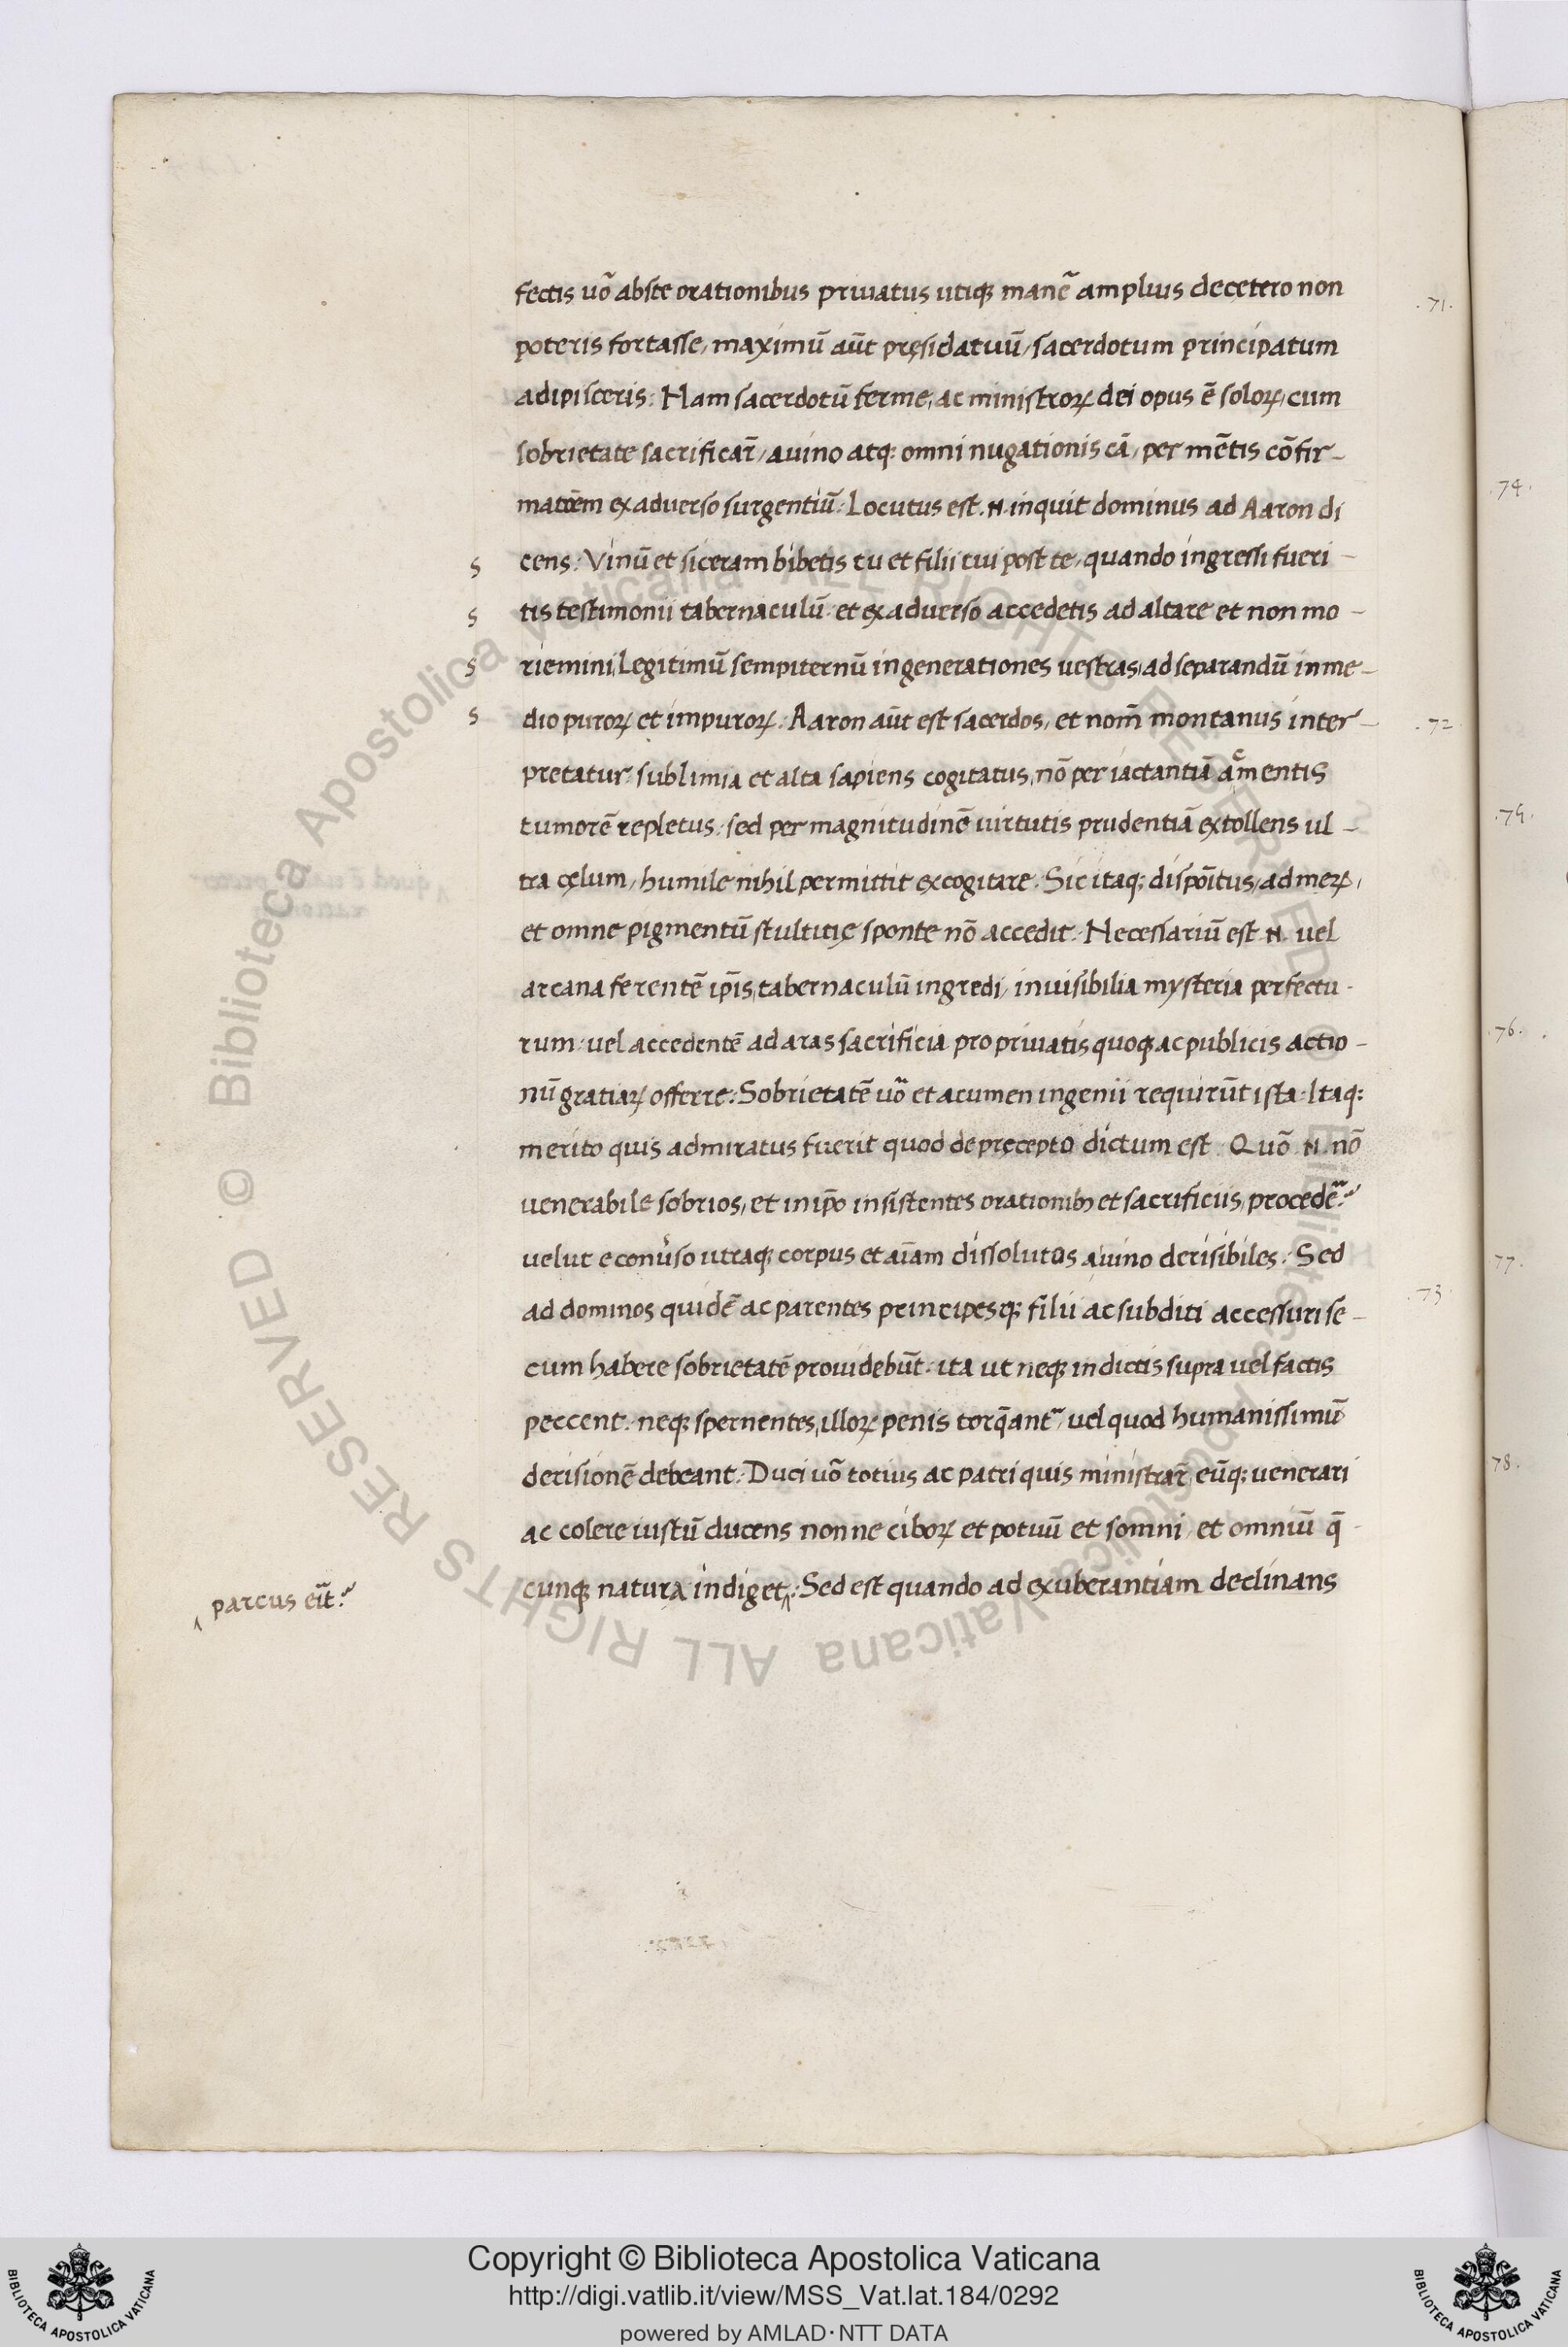 fectis uõ abste orationibus priuatus utiqꝫ manẽ amplius decetero non
.71.
poteris fortasse, maximũ aũt pręsidatuũ, sacerdotum principatum
adipisceris: Nam sacerdotũ ferme, ac ministroꝝ dei opus ẽ soloꝝ, cum
sobrietate sacrificar̃, auino atq: omni nugationis cã, per mẽtis cõfir-
.74.
matõem exaduerso surgentiũ: Locutus est .N. inquit dominus ad Aaron di
s cens: Vinũ et siceram bibetis tu et filii tui post te, quando ingressi fueri-
s tis testimonii tabernaculũ: et exaduerso accedetis ad altare et non mo-
s riemini, Legitimũ sempiternũ in generationes uestras, ad separandũ in me-
s dio puroꝝ et impuroꝝ: Aaron aũt est sacerdos, et nom̃ montanus inter-
.72
pretatur: sublimia et alta sapiens cogitatus, nõ per iactantiã amentis
tumorẽ repletus: sed per magnitudinẽ uirtutis prudentiã extollens ul-
.75.
tra cęlum, humile nihil permittit excogitare: Sic itaqꝫ dispõitus, ad meꝝ,
et omne pigmentũ stultitię sponte nõ accedit: Necessariũ est .N. uel
arcana ferentẽ ip̃is, tabernaculũ ingredi, inuisibilia mysteria perfectu-
rum: uel accedentẽ ad aras sacrificia pro priuatis quoqꝫ ac publicis actio-
.76.
nũ gratiaꝝ offerre: Sobrietatẽ uõ et acumen ingenii requirũt ista: Itaq:
merito quis admiratus fuerit quod de pręcepto dictum est: Quõ .N. nõ
uenerabile sobrios, et in ip̃o insistentes orationibꝫ et sacrificiis, procedẽ?
uelut econũso utraqꝫ corpus et aĩam dissolutos auino derisibiles: Sed
.77.
ad dominos quidẽ ac parentes principesqꝫ filii ac subditi accessuri se-
.73
cum habere sobrietatẽ prouidebũt: ita ut neqꝫ in dictis supra uel factis
peccent: neqꝫ spernentes, illoꝝ penis torq̃ant, uel quod humanissimũ
derisionẽ debeant: Duci uõ totius ac patri quis ministrar̃, eũqꝫ uenerari
.78.
ac colere iustũ ducens nonne ciboꝝ et potuũ et somni, et omniũ q̃-
cunqꝫ natura indiget‸: Sed est quando ad exuberantiam declinans
‸ parcus eĩt?
Copyright © Biblioteca Apostolica Vaticana
http://digi.vatlib.it/view/MSS_Vat.lat.184/0292
powered by AMLAD·NTT DATA
BIBLIOTECA APOSTOLICA VATICANA
BIBLIOTECA APOSTOLICA VATICANA
© Biblioteca Apostolica Vaticana ALL RIGHTS RESERVED © Biblioteca Apostolica Vaticana ALL RIGHTS RESERVED